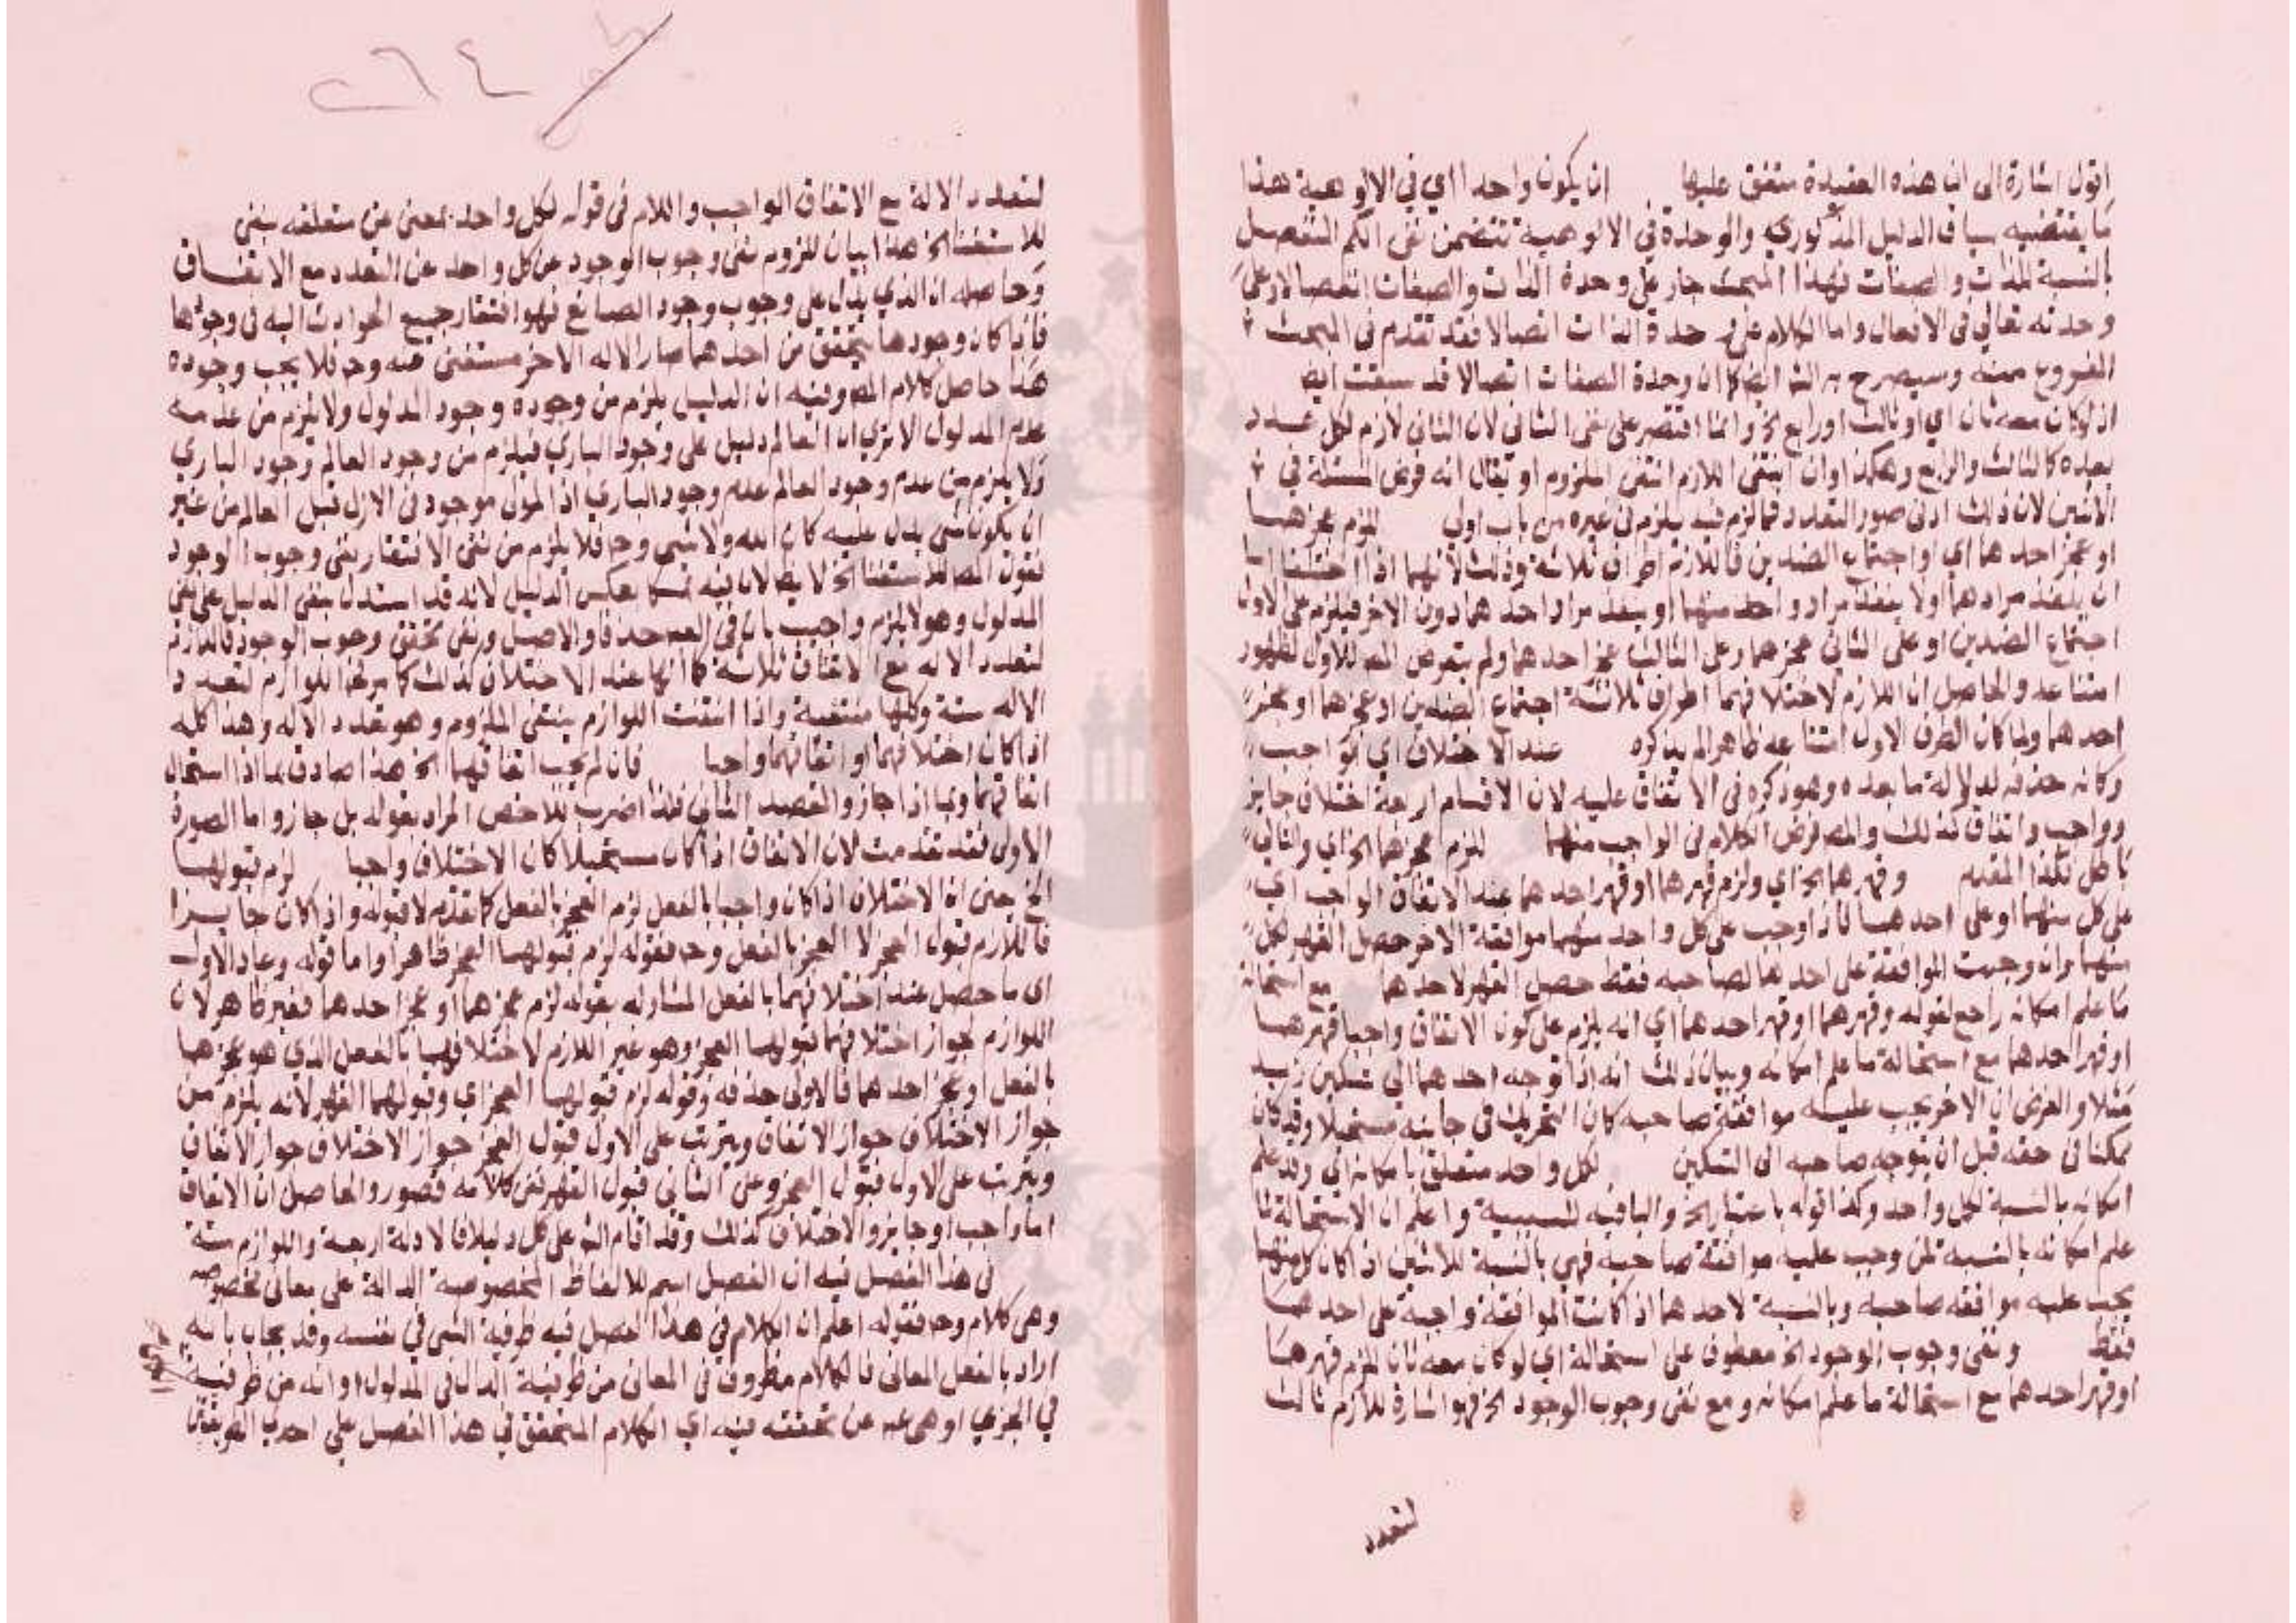 اقول اشارة الى ان هذه العقيدة متفق عليها ان يكون واحدا اي في الالوهية هذا
ما يقتضيه سياق الدليل المذكور والوحدة في الالوهية تتضمن نفي الكم المنفصل
بالنسبة للذات والصفات فهذا المبحث جار على وحدة الذات والصفات انفصالا وعلى
وحدته تعالى في الافعال واما الكلام على وحدة الذات اتصالا فقد تقدم في المبحث
المفروغ منه وسيصرح به ايضا كما ان وحدة الصفات اتصالا قد سبقت ايضا
اذ لو كان معه ثان اي او ثالث او رابع الخ وانما اقتصر على نفي الثاني لان الثاني لازم لكل عدد
بعده كالثالث والرابع وهكذا وان انتفى اللازم انتفى الملزوم او يقال انه فرض المسئلة في
الاثنين لان ذلك ادنى صور التعدد فما لزم فيه يلزم في غيره من باب اولى للزم عجزهما
او عجز احدهما اي او اجتماع الضدين فاللازم اطراف ثلاثة وذلك لانهما اذا اختلفا اما
ان ينفذ مرادهما او لا ينفذ مراد واحد منهما او ينفذ مراد احدهما دون الاخر فيلزم على الاول
اجتماع الضدين او على الثاني عجزهما وعلى الثالث عجز احدهما ولم يتعرض المص للاول لظهور
امتناعه والحاصل ان اللازم لاختلافهما اطراف ثلاثة اجتماع الضدين او عجزهما او عجز
احدهما ولما كان الطرف الاول امتناعه ظاهرا لم يذكره عند الاختلاف اي الواجب
وكانه حذفه لدلالة ما بعده وهو ذكره في الاتفاق عليه لان الاقسام اربعة اختلاف جايز
وواجب واتفاق كذلك والمص فرض الكلام في الواجب منهما للزم عجزهما الخ اي والتالي
باطل فكذا المقدم وقهرهما الخ اي ولزم قهرهما او قهر احدهما عند الاتفاق الواجب اي
على كل منهما او على احدهما فاذا وجب على كل واحد منهما موافقة الاخر حصل القهر لكل
منهما وان وجبت الموافقة على احدهما لصاحبه فقط حصل القهر لاحدهما مع استحالة
ما علم امكانه راجع لقوله وقهرهما او قهر احدهما اي انه يلزم على كون الاتفاق واجبا قهرهما
او قهر احدهما مع استحالة ما علم امكانه وبيان ذلك انه اذا توجه احدهما الى تسكين زيد
مثلا والفرض ان الاخر يجب عليه موافقة صاحبه كان التحريك في جانبه مستحيلا وقد كان
ممكنا في حقه قبل ان يتوجه صاحبه الى التسكين لكل واحد متعلق بامكانه اي وقد علم
امكانه بالنسبة لكل واحد وكذا قوله باعتبار الخ والباء فيه للسببية واعلم ان الاستحالة لما
علم امكانه بالنسبة لمن وجب عليه موافقة صاحبه فهي بالنسبة للاثنين اذا كان كل منهما
يجب عليه موافقة صاحبه وبالنسبة لاحدهما اذا كانت الموافقة واجبة على احدهما
فقط ونفي وجوب الوجود الخ معطوف على استحالة اي لو كان معه ثان للزم قهرهما
او قهر احدهما مع استحالة ما علم امكانه ومع نفي وجوب الوجود الخ فهو اشارة للازم ثالث
لتعدد
لتعدد الاله مع الاتفاق الواجب واللام في قوله لكل واحد بمعنى عن متعلقه بنفي
للاستغنا الخ هذا بيان للزوم نفي وجوب الوجود عن كل واحد عن التعدد مع الاتفاق
وحاصله ان الذي يدل على وجوب وجود الصانع فهو افتقار جميع الحوادث اليه في وجودها
فاذا كان وجودها يتحقق من احدهما صار الاله الاخر مستغنى عنه وح فلا يجب وجوده
هذا حاصل كلام المص وفيه ان الدليل يلزم من وجوده وجود المدلول ولا يلزم من عدمه
عدم المدلول الا ترى ان العالم دليل على وجود الباري فيلزم من وجود العالم وجود الباري
ولا يلزم من عدم وجود العالم عدم وجود الباري اذ المولى موجود في الازل قبل العالم من غير
ان يكون شي يدل عليه كان الله ولا شي وح فلا يلزم من نفي الافتقار نفي وجوب الوجود
فقول المص للاستغنا الخ لا يصح لان فيه تمسكا بعكس الدليل لانه قد استدل بنفي الدليل على نفي
المدلول وهو لا يلزم واجيب بان في المص حذفا والاصل ونفي تحقق وجوب الوجود فاللازم
لتعدد الاله مع الاتفاق ثلاثة كما انها عند الاختلاف كذلك كما مر فاللوازم لتعدد
الاله ستة وكلها منتفية واذا انتفت اللوازم ينتفي الملزوم وهو تعدد الاله وهذا كله
اذا كان اختلافهما او اتفاقهما واجبا فان لم يجب اتفاقهما الخ هذا صادق بما اذا استحال
اتفاقهما وبما اذا جاز والقصد الثاني فلذا اضرب للاخص المراد بقوله بل جاز واما الصورة
الاولى فقد تقدمت لان الاتفاق اذا كان مستحيلا كان الاختلاف واجبا لزم قبولهما
الخ يعني ان الاختلاف اذا كان واجبا بالفعل لزم العجز بالفعل كما تقدم لا قبوله واذا كان جايزا
فاللازم قبول العجز لا العجز بالفعل وح فقوله لزم قبولهما العجز ظاهر واما قوله وعاد الاول
اي ما حصل عند اختلافهما بالفعل المشار له بقوله لزم عجزهما او عجز احدهما فغير ظاهر لان
اللوازم لجواز اختلافهما قبولهما العجز وهو غير اللازم لاختلافهما بالفعل الذي هو عجزهما
بالفعل او عجز احدهما فالاولى حذفه وقوله لزم قبولهما العجز اي وقبولهما القهر لانه يلزم من
جواز الاختلاف جواز الاتفاق ويترتب على الاول قبول العجز جواز الاختلاف جواز الاتفاق
ويترتب على الاول قبول العجز وعلى الثاني قبول القهر ففي كلامه قصور والحاصل ان الاتفاق
اما واجب او جايز والاختلاف كذلك وقد اقام المص على كل دليلا فالادلة اربعة واللوازم ستة
في هذا الفصل فيه ان الفصل اسم للالفاظ المخصوصة الدالة على معاني مخصوصة
وهي كلام وح فقوله اعلم ان الكلام في هذا الفصل فيه ظرفية الشي في نفسه وقد يجاب بانه
اراد بالفصل المعاني فالكلام مظروف في المعاني من ظرفية الدال في المدلول او انه من ظرفية
في الجزي او هي عبر عن تحققه فيه اي الكلام المتحقق في هذا الفصل على احدى الفريقين